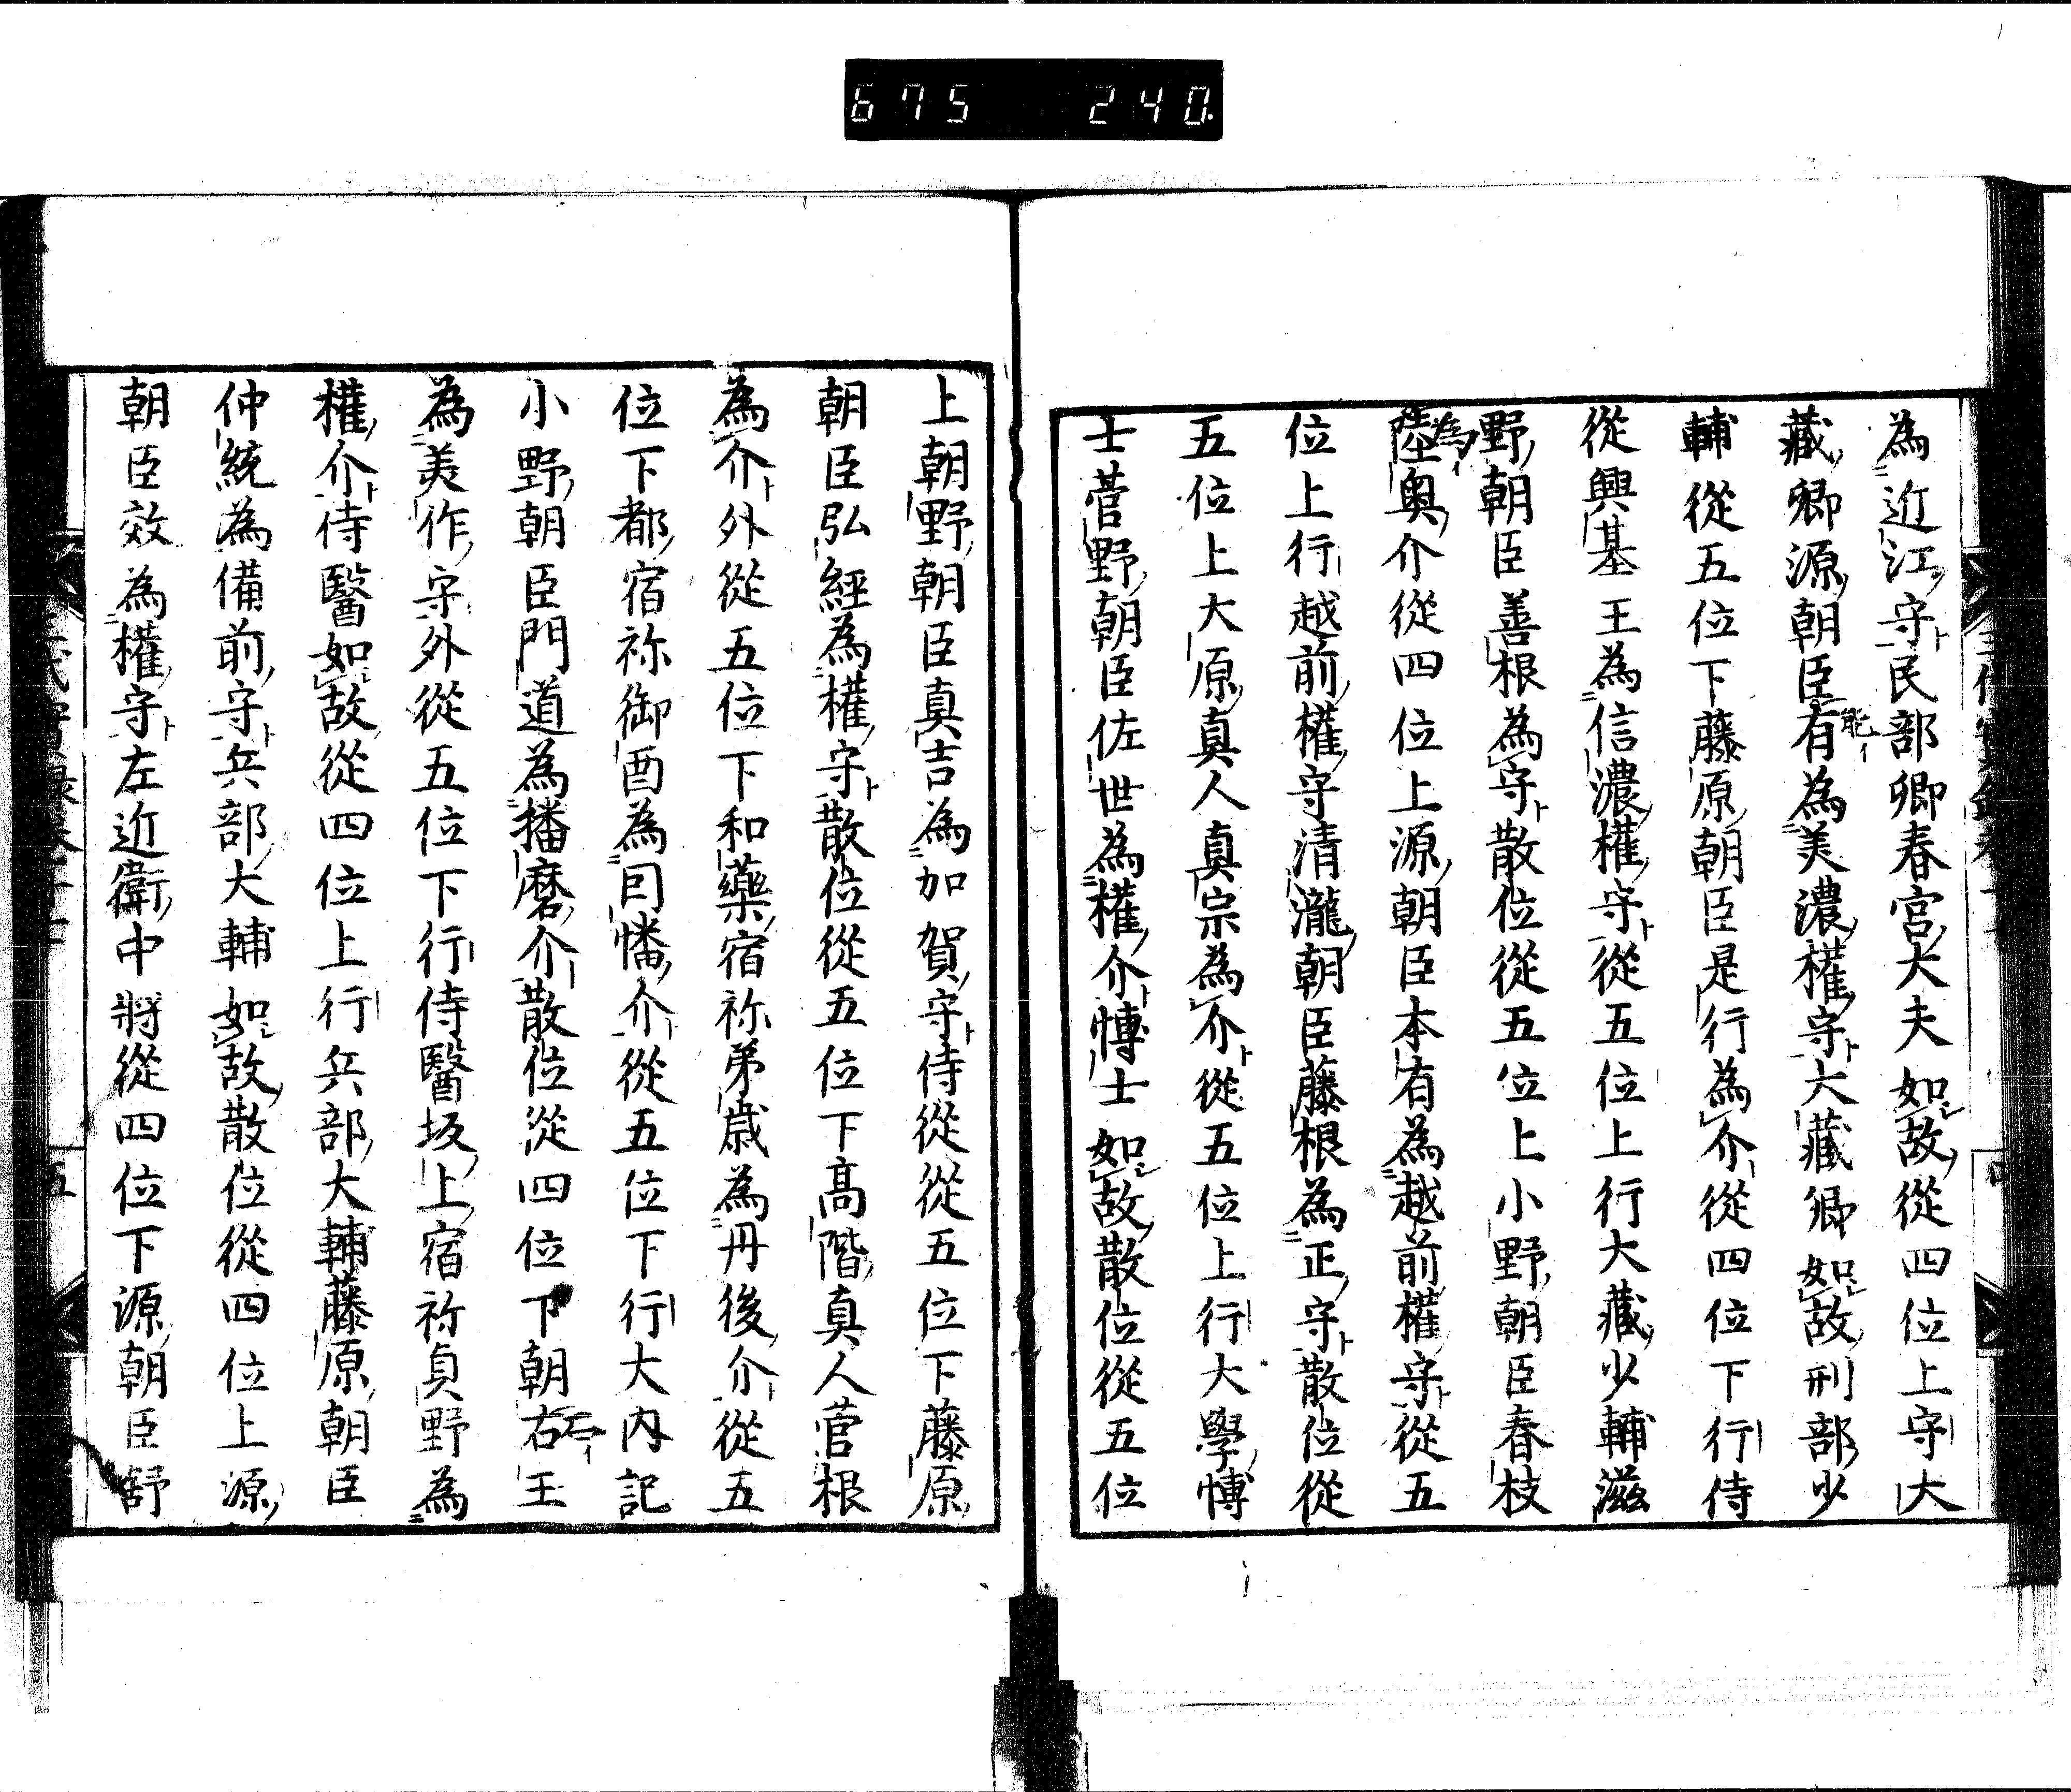 675 240
為近江守民部卿春宮大夫如故從四位上守大
藏卿源朝臣有為美濃權守大藏卿如故刑部少
輔從五位下藤原朝臣是行為介從四位下行侍
從興基王為信濃權守從五位上行大藏少輔滋
野朝臣善根為守散位從五位上小野朝臣春枝
陸奥介從四位上源朝臣本有為越前權守從五
位上行越前權守清瀧朝臣藤根為正守散位從
五位上大原真人真宗為介從五位上行大學博
士菅野朝臣佐世為權介博士如故散位從五位
上朝野朝臣真吉為加賀守侍從從五位下藤原
朝臣弘經為權守散位從五位下高階真人菅根
為介外從五位下和藥宿祢弟歳為丹後介從五
位下都宿祢御酉為囙幡介從五位下行大内記
小野朝臣門道為播磨介散位從四位下朝右王
為美作守外從五位下行侍醫坂上宿祢貞野為
權介侍醫如故從四位上行兵部大輔藤原朝臣
仲統為備前守兵部大輔如故散位從四位上源
朝臣效為權守左近衛中將從四位下源朝臣舒
五